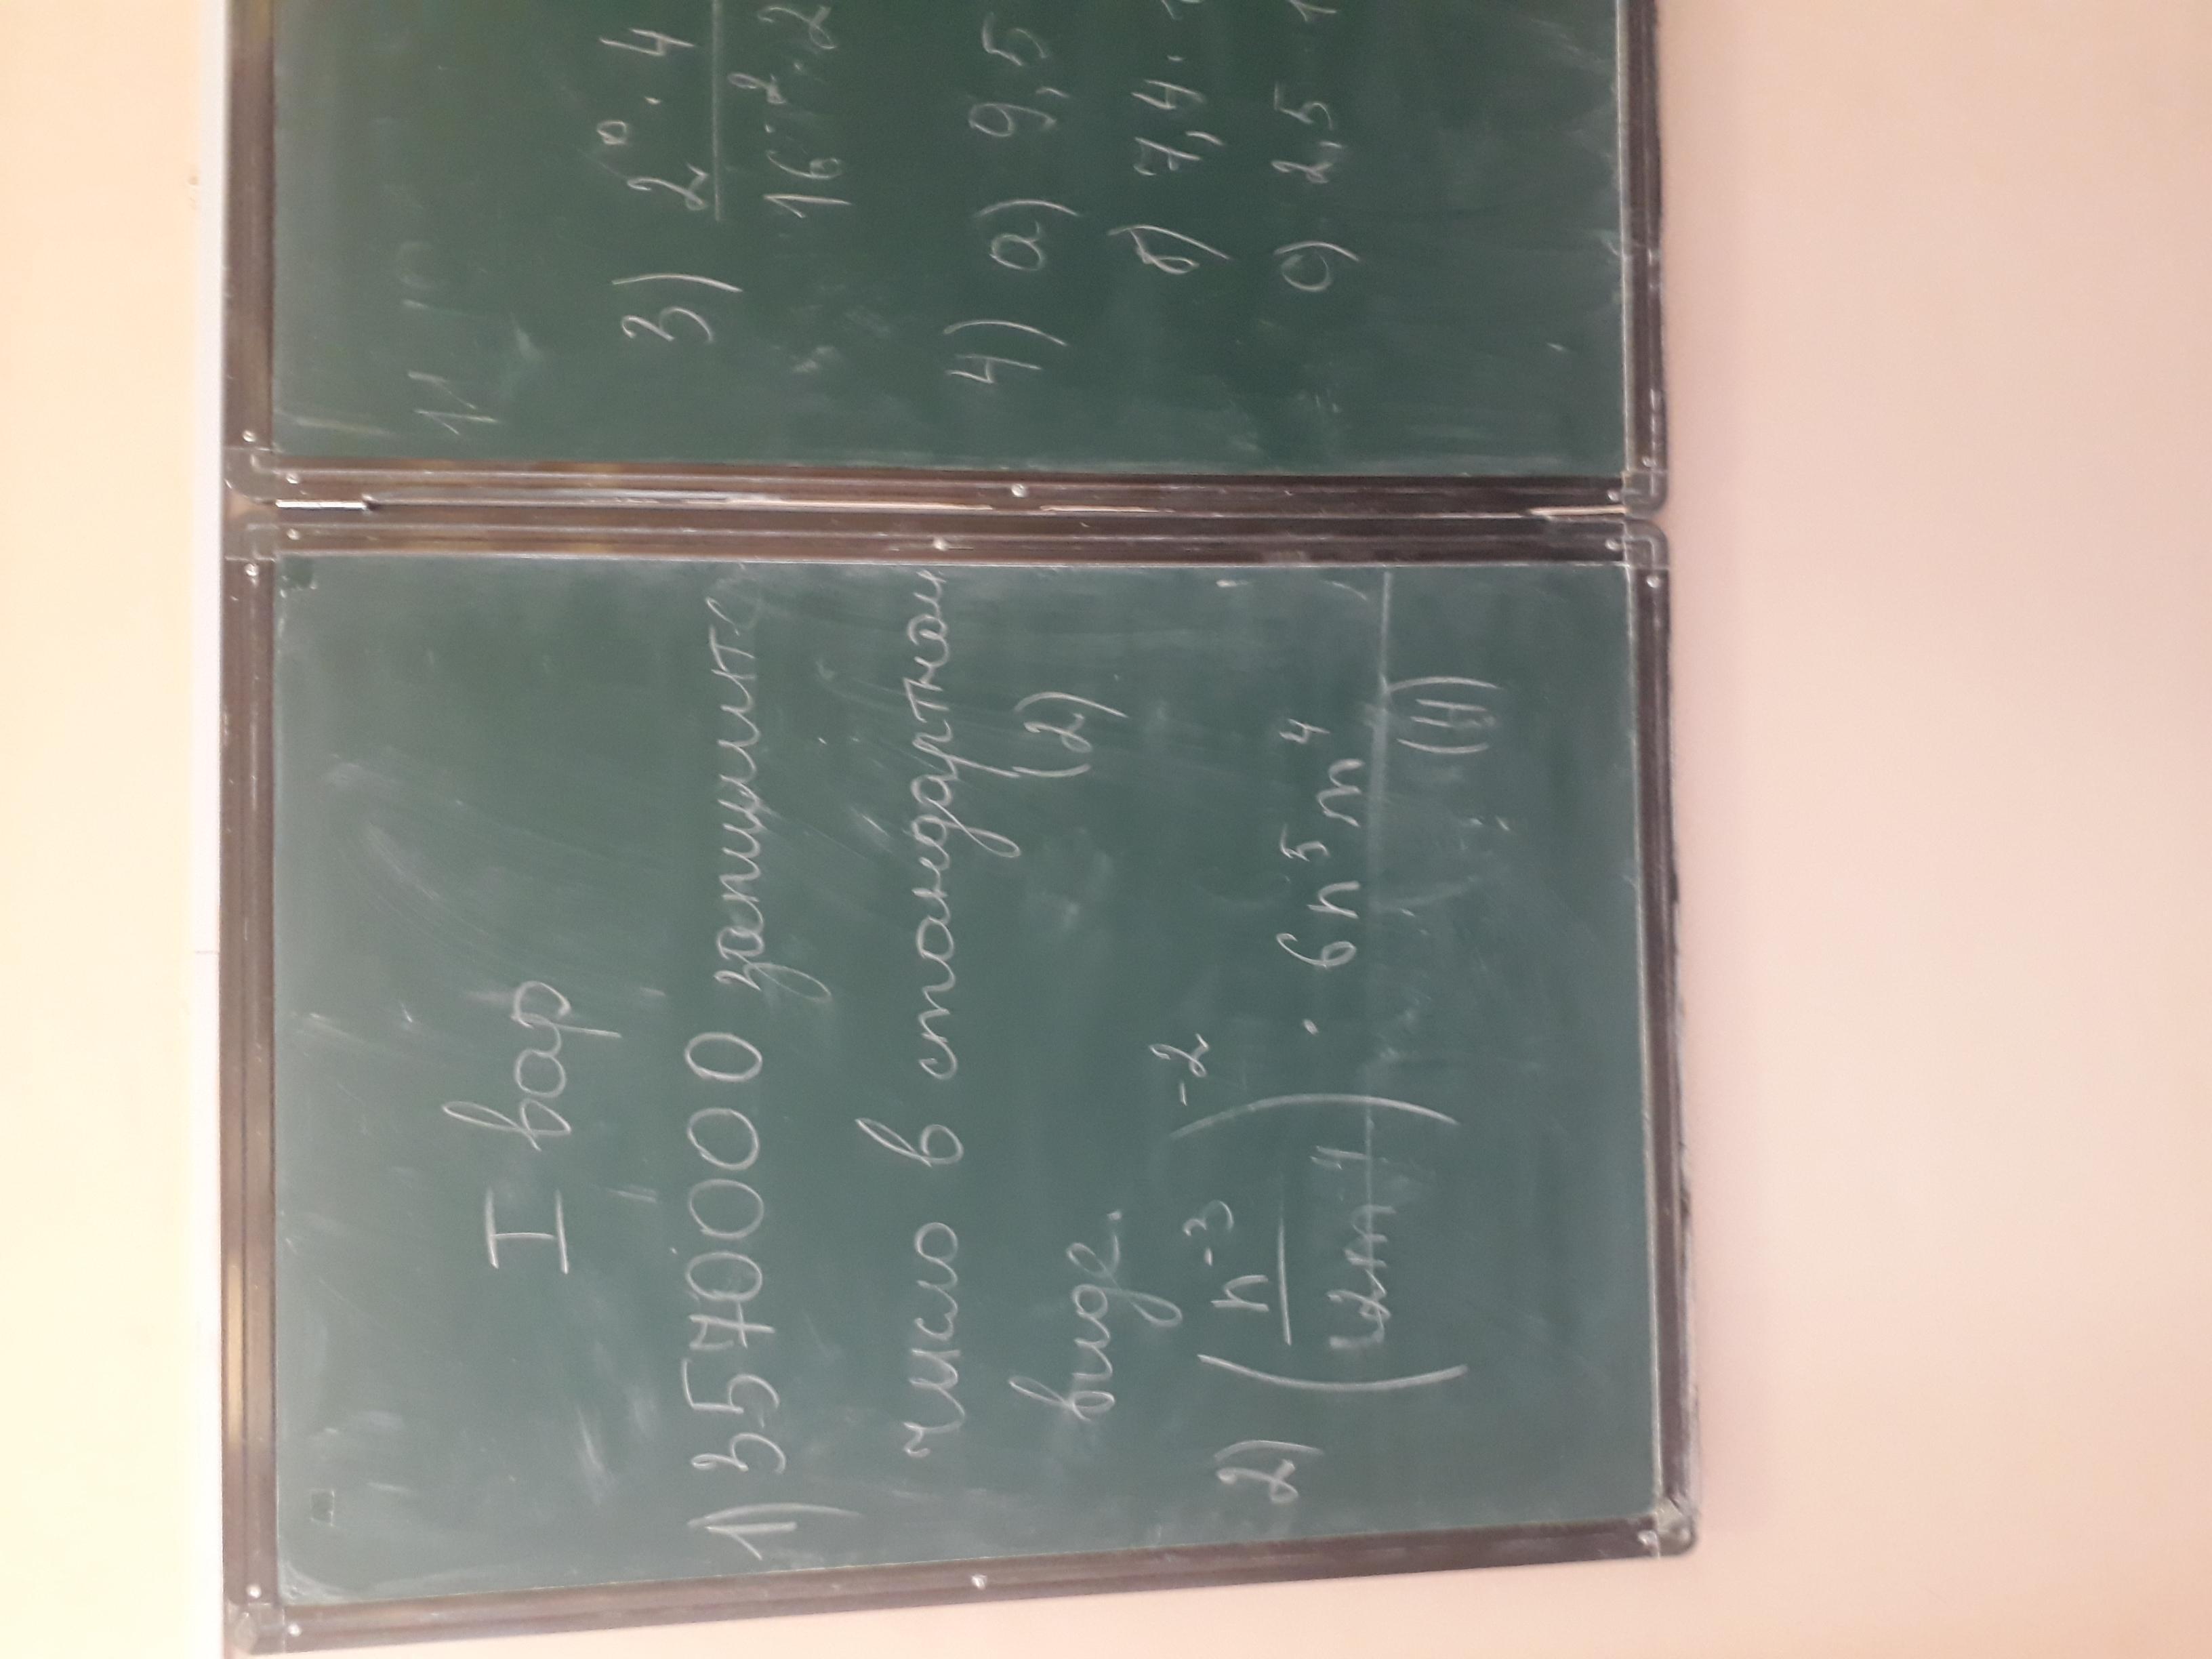 I вар
1) 3570000 запишите
число в стандартном
виде. (2)
2) (n⁻³ / 12m⁴)⁻² · 6n⁵m⁴
(4)
3) 2⁰ · 4
16⁻² · 2
4) а) 9,5
б) 7,4 ·
с) 2,5